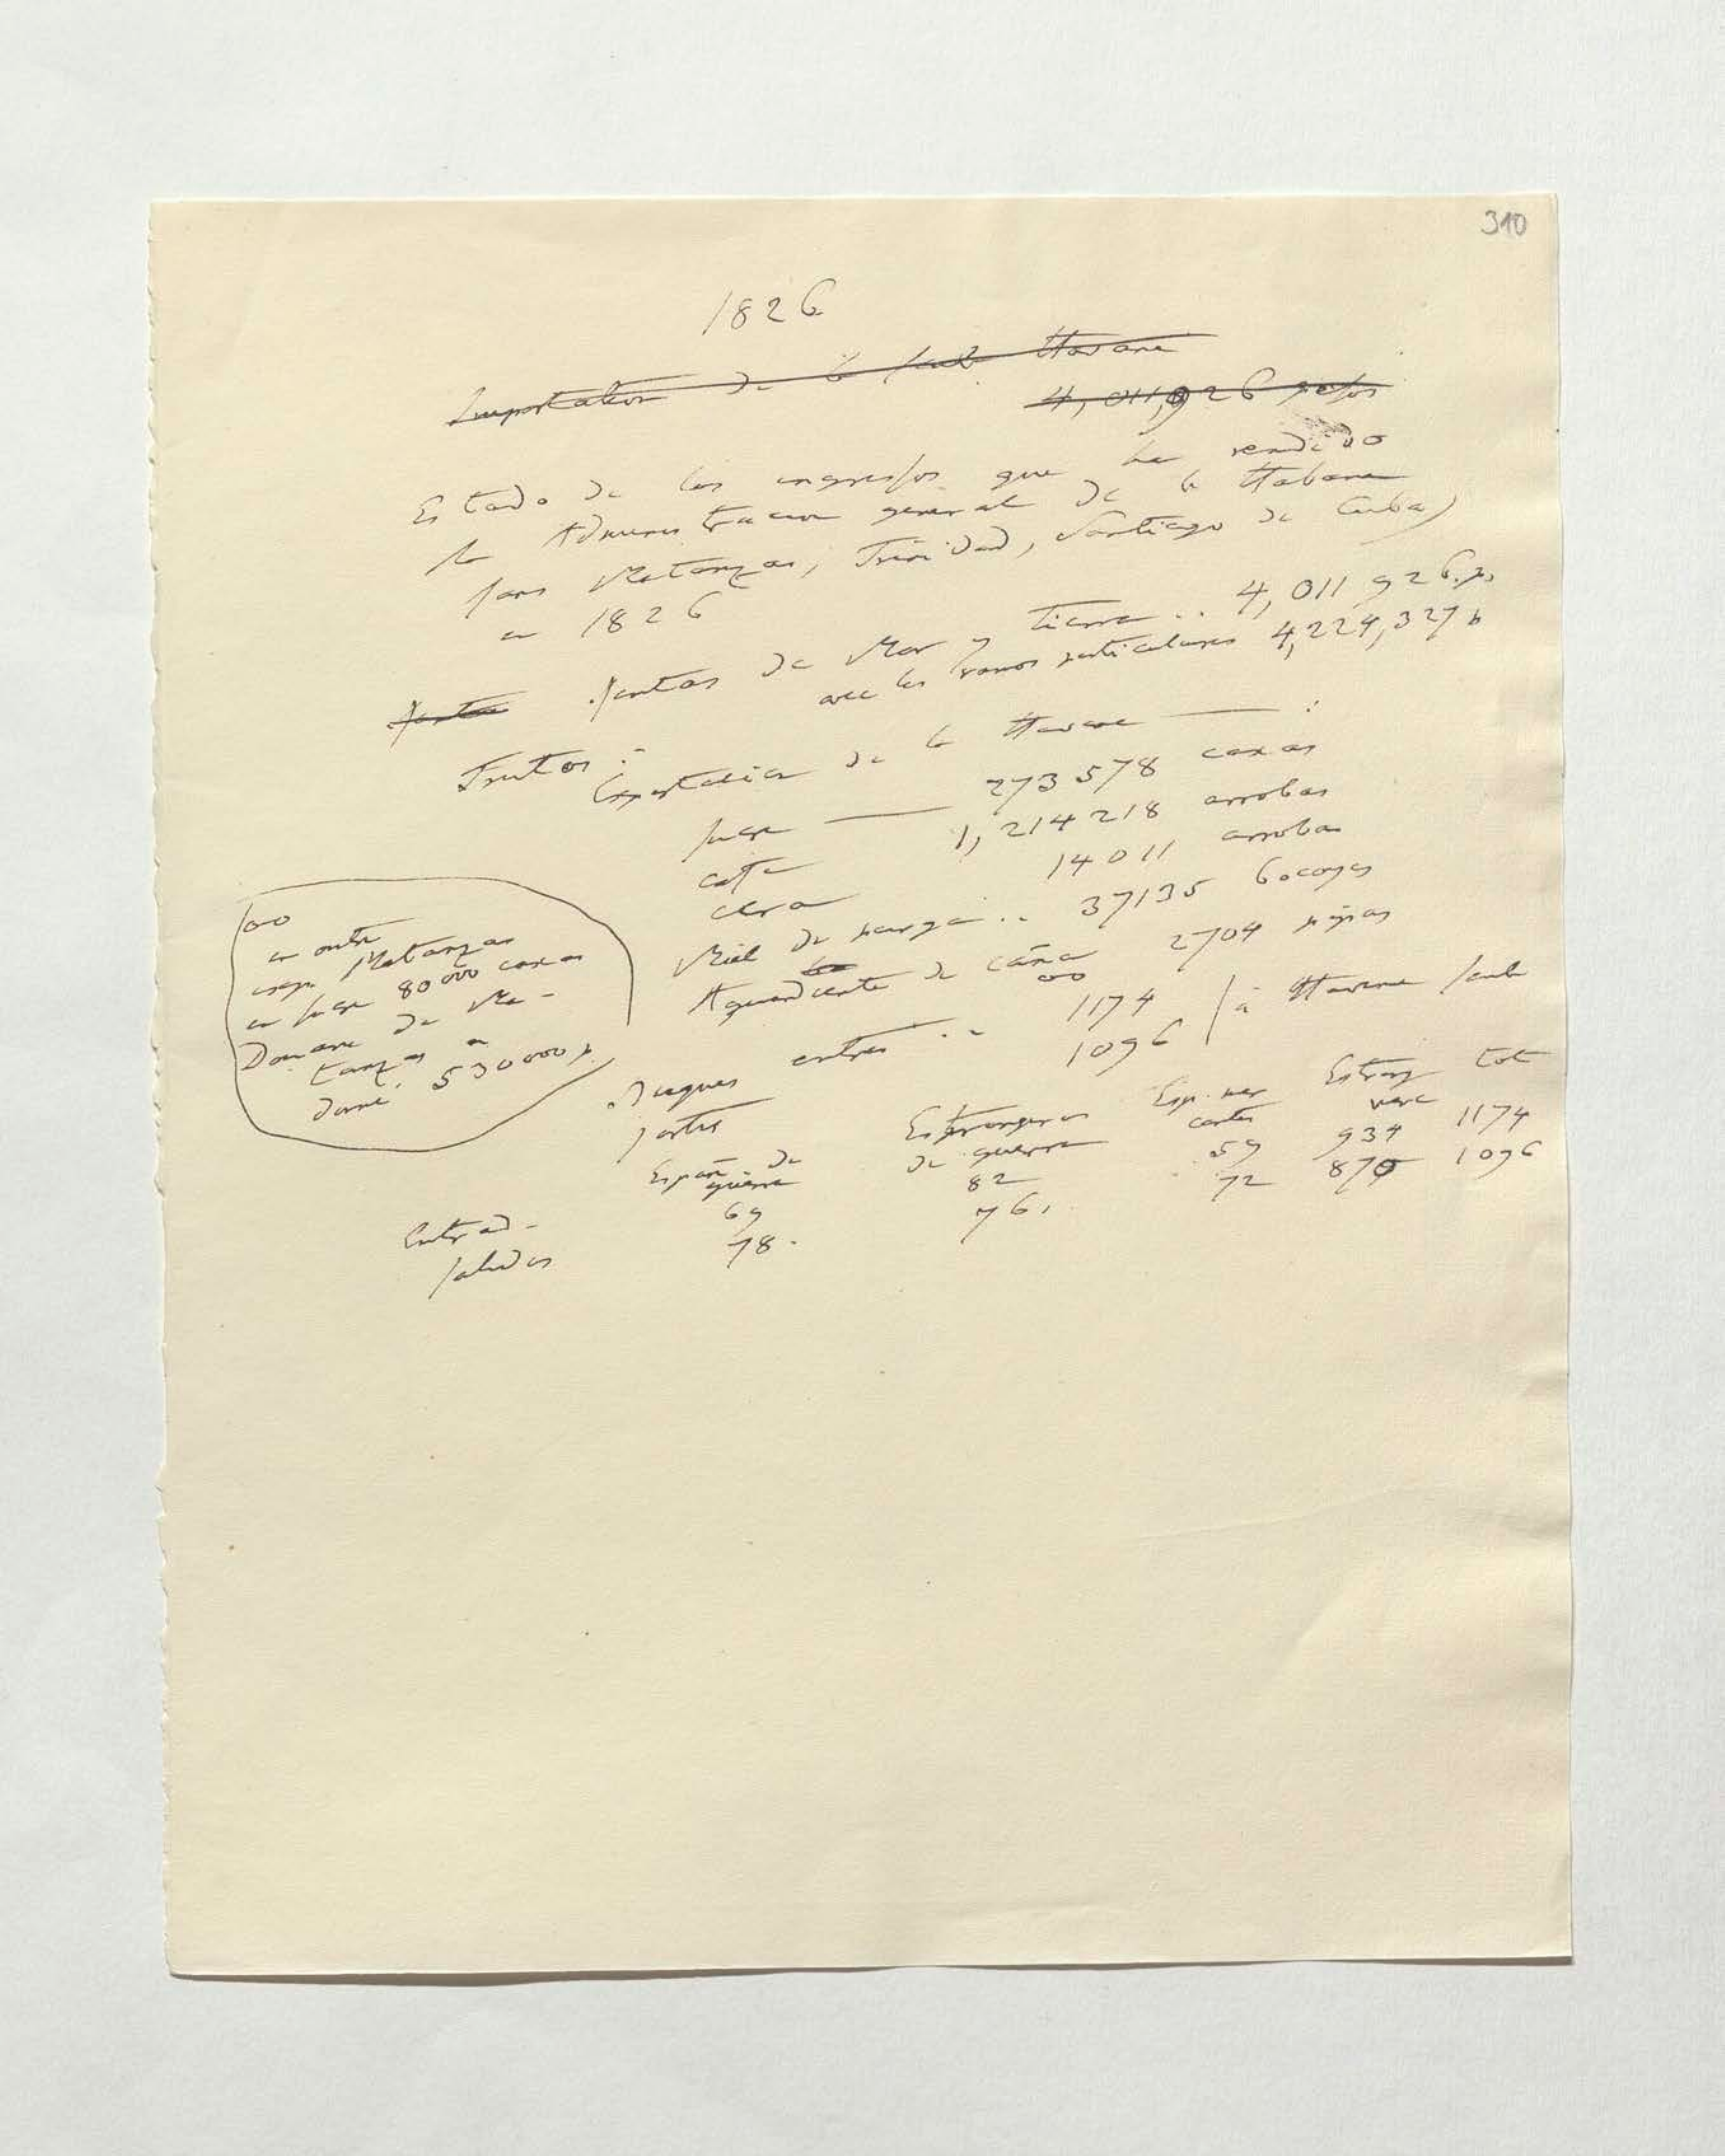 310
1826
Importation de la seule Havane
4,011,926 pesos
Estado de los ingressos que ha rendido
la Administracion general de la Habana
(sans Matanzas, Trinidad, Santiago de Cuba)
en 1826
Rentas de Mar y tierra .. 4,011 926 p.
avec les ramos particulares 4,224,327 p
Frutos :
Exportation de la Havane — :
sucre — 273 578 caxas
café 1,214 218 arrobas
cera 14 011 arrobas
Miel de purga .. 37135 bocoyes
Aguardiente de caña 2704 pipas
oo
oo
en outre
Matanzas
exp.
en sucre 80 000 caxas
Douane de Ma-
tanzas a
donné. 530 000 p.
Buques entrés .. 1174
sortis 1096 | à Havane seule
Españ. de guerra
Estrangeros de guerra
Esp. mer cantes
Estrang merc
tot
Entrad- 69 82 59 934 1174
Salidas 78. 76. 72 870 1096